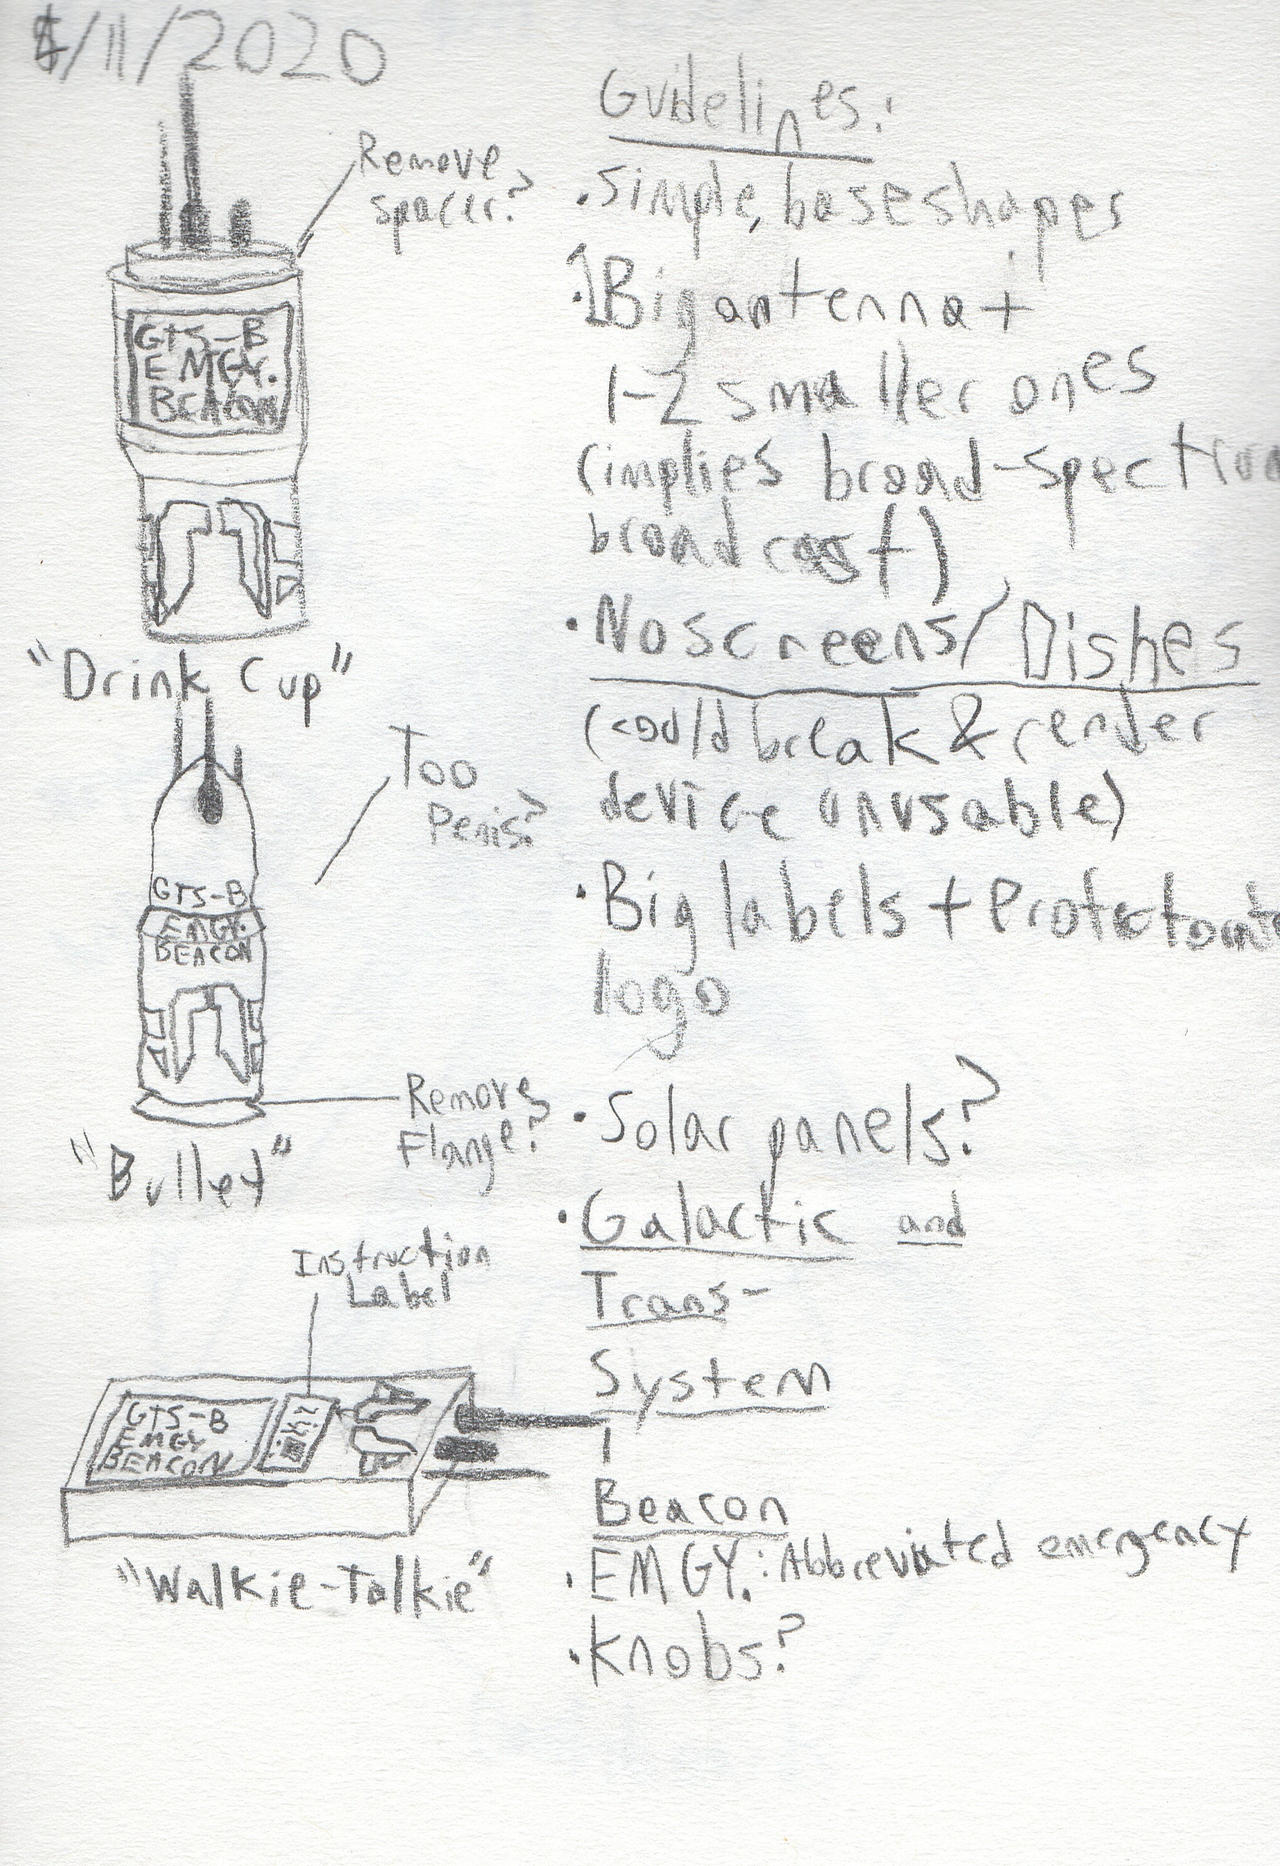 /11/2020
Remove
Spacer?
GTS-B
EMGY.
BEACON
"Drink Cup"
Too
Penis?
GTS-B
EMGY.
BEACON
Remove
Flange?
"Bullet"
Instruction
Label
GTS-B
EMGY
BEACON
"Walkie-Talkie"
Guidelines:
• Simple, base shapes
• 1 Big antenna +
1-2 smaller ones
(implies broad-spectrum
broadcast)
• No screens/Dishes
(could break & render
device unusable)
• Big labels +
logo
• Solar panels?
• Galactic and
Trans-
System
Beacon
• EMGY.: Abbreviated emergency
• Knobs?